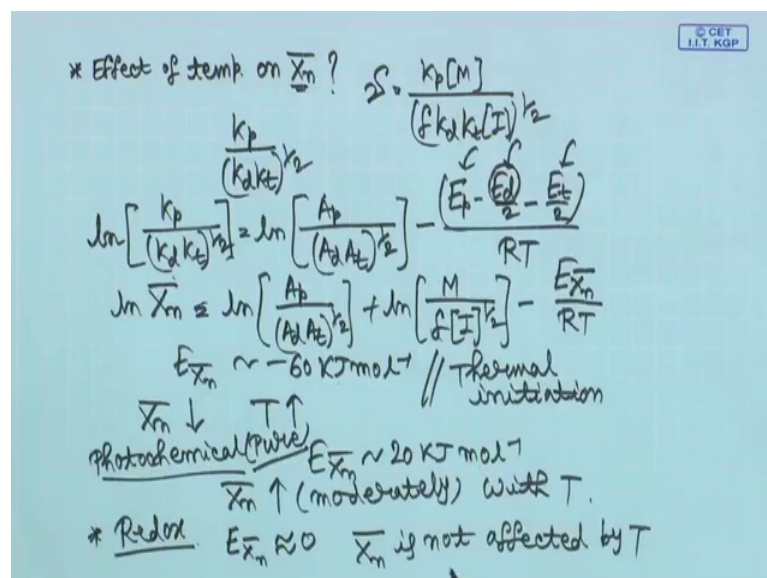 © CET
I.I.T. KGP
* Effect of temp. on X̅n ? ν = Kp[M] / (f Kd Kt [I])^1/2
Kp / (Kd Kt)^1/2
ln[Kp / (Kd Kt)^1/2] = ln[Ap / (Ad At)^1/2] - (Ep - Ed/2 - Et/2) / RT
ln X̅n = ln[Ap / (Ad At)^1/2] + ln[M / f[I]^1/2] - EX̅n / RT
EX̅n ~ -60 KJ mol-1 // Thermal
initiation
X̅n ↓ T ↑
Photochemical (Pure) EX̅n ~ 20 KJ mol-1
X̅n ↑ (moderately) with T.
* Redox EX̅n ≈ 0 X̅n is not affected by T